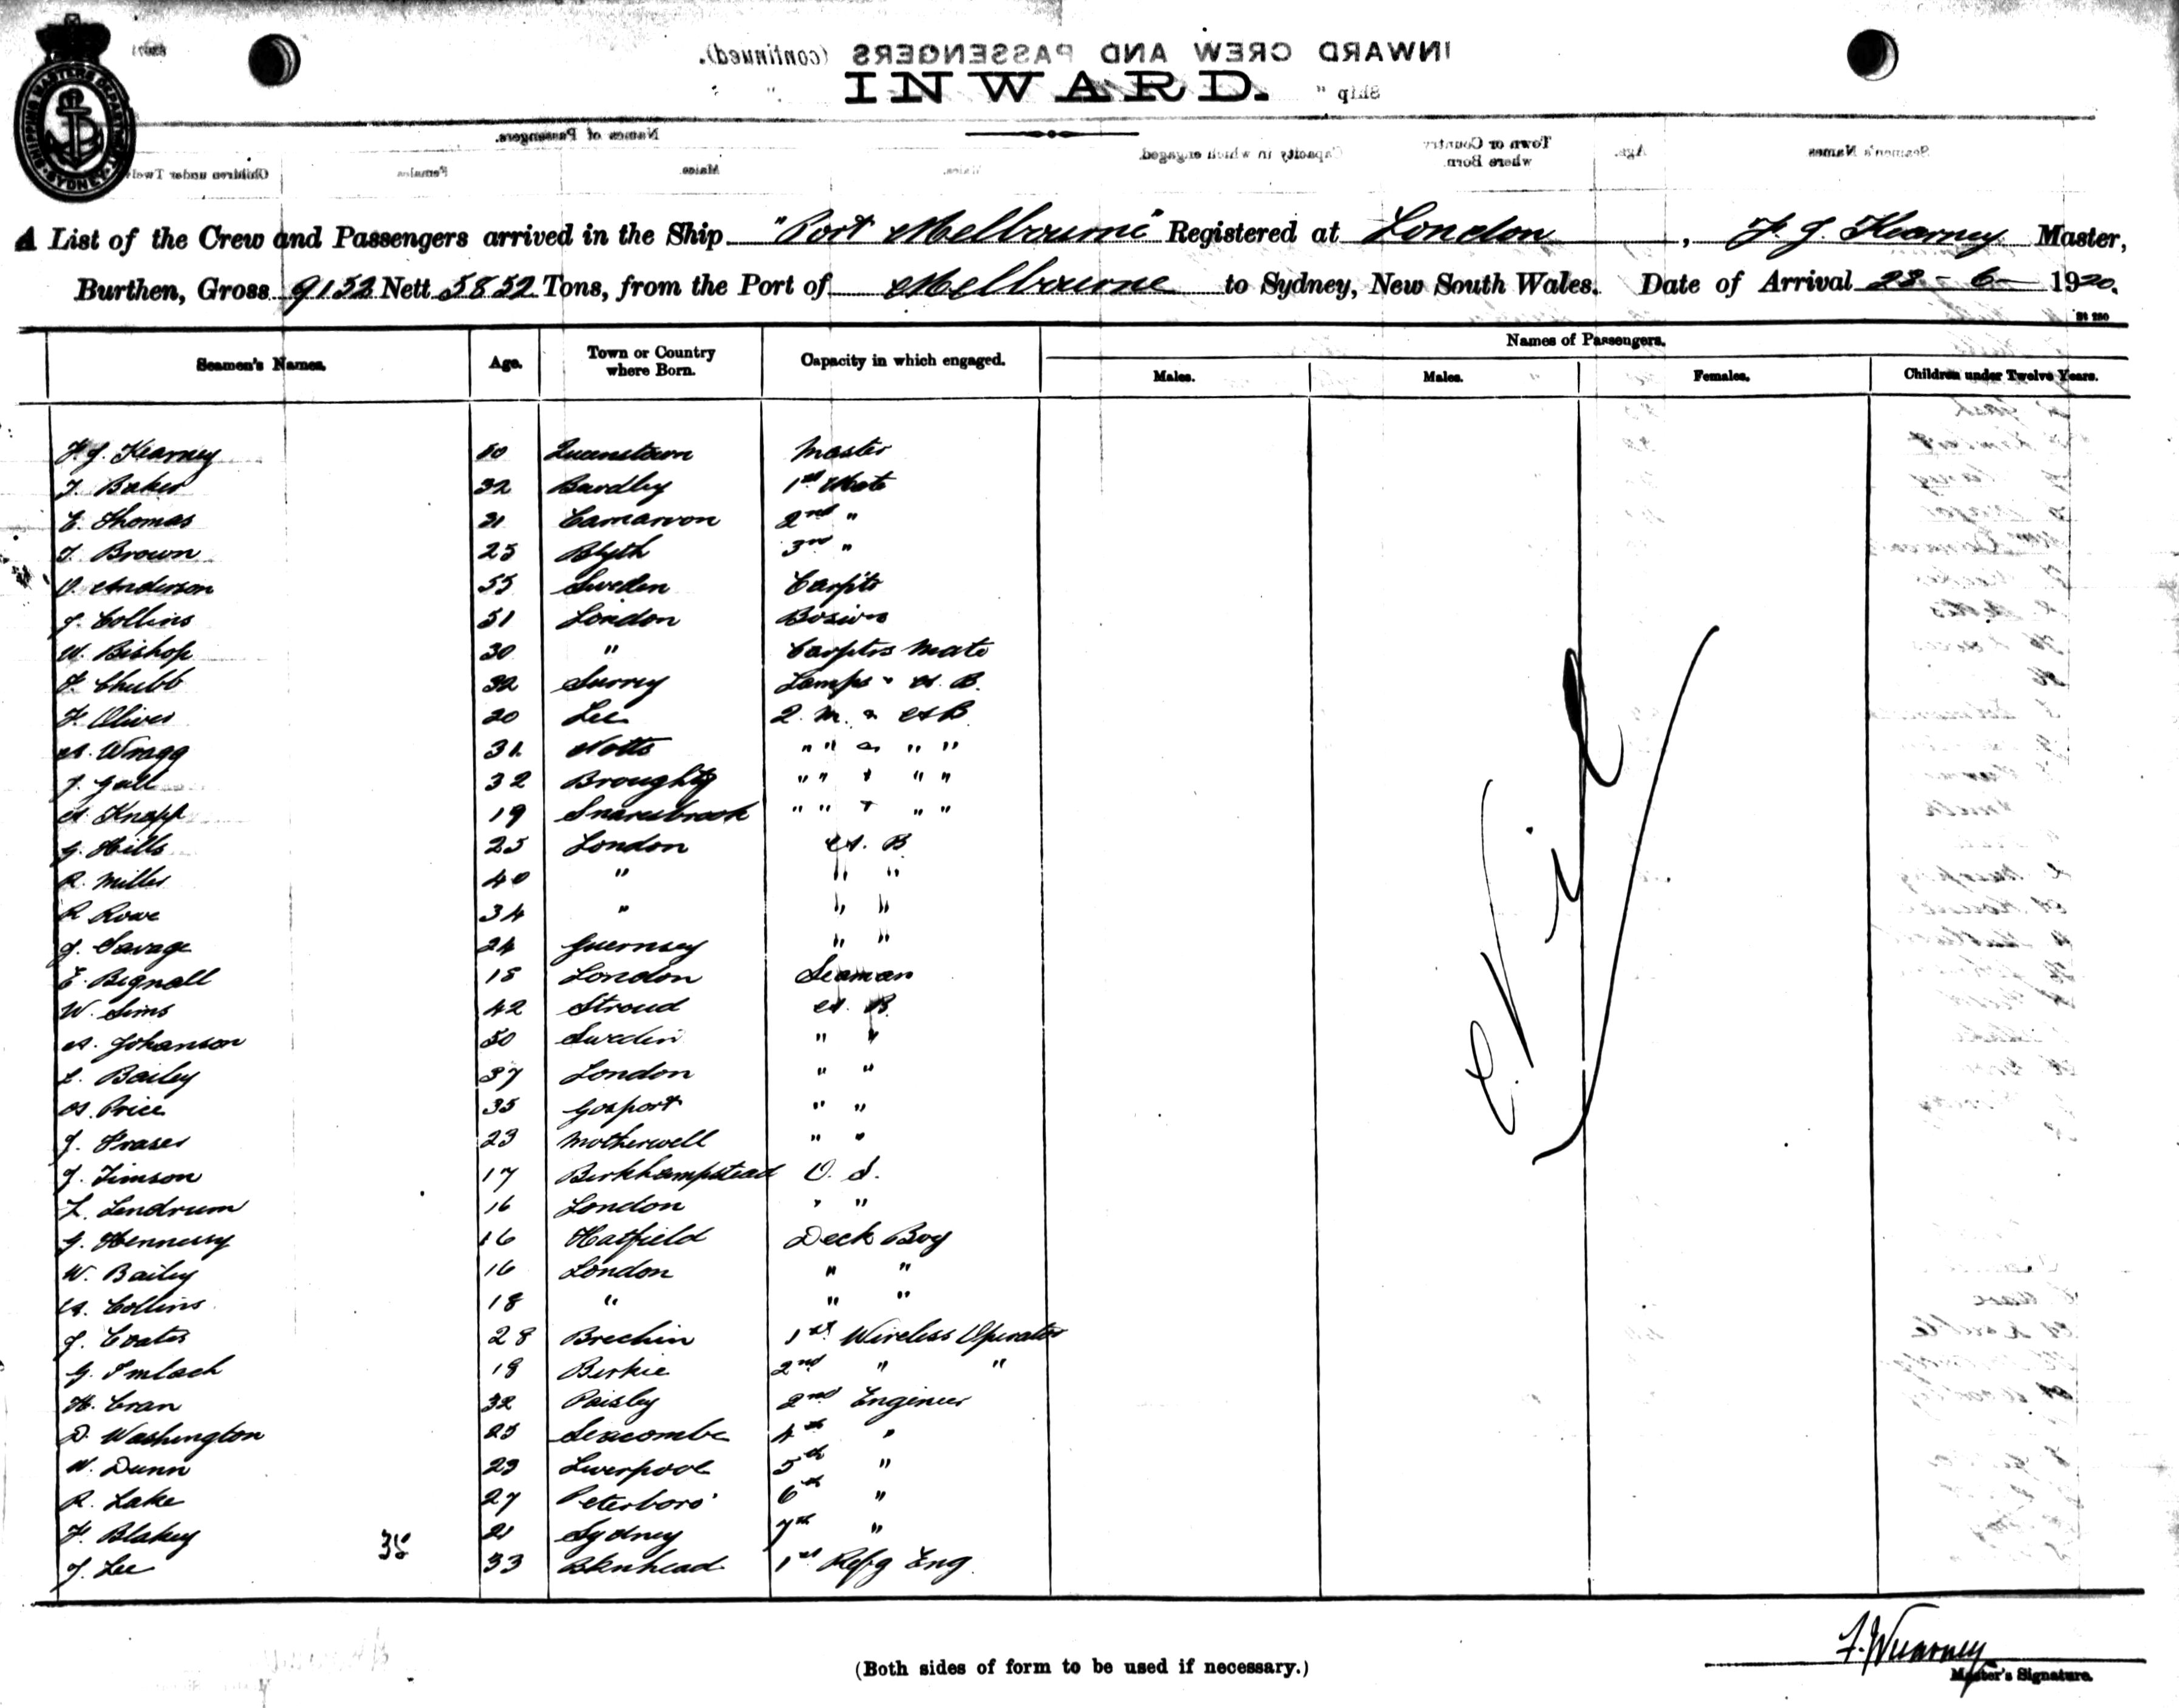 SHIPPING MASTERS DEPARTMENT
SYDNEY
INWARD CREW AND PASSENGERS (continued).
INWARD.
Ship "
Names of Passengers.
Seamen's Names
Age.
Town or Country where Born
Capacity in which engaged.
Males.
Males
Females
Children under Twelve
A List of the Crew and Passengers arrived in the Ship "Port Melbourne" Registered at London, F. J. Kearney Master,
Burthen, Gross 9152 Nett 5852 Tons, from the Port of Melbourne to Sydney, New South Wales. Date of Arrival 23-6-1920.
Seamen's Names. Age. Town or Country where Born. Capacity in which engaged. Names of Passengers.
Males. Males. Females. Children under Twelve Years.
F. J. Kearney 50 Queenstown Master
T. Baker 32 Bardley 1st Mate
E. Thomas 31 Carnarvon 2nd "
T. Brown 25 Blyth 3rd "
O. Anderson 55 Sweden Carptr
J. Collins 51 London Bosun
W. Bishop 30 " Carptrs Mate
F. Chubb 32 Surrey Lamps & A. B.
F. Oliver 20 Lee Q. M. & A B
A. Wragg 31 Notts " " & " "
J. Gall 32 Broughty " " + " "
A. Knapp 19 Snaresbrook " " + " "
G. Hills 25 London A. B.
R. Miller 40 " " "
R Rowe 34 " " "
J. Savage 24 Guernsey " "
E. Bignall 18 London Seaman
W. Sims 42 Stroud A. B.
A. Johanson 50 Sweden " "
L. Bailey 37 London " "
A. Price 35 Gosport " "
J. Fraser 23 Motherwell " "
J. Timson 17 Birkhampstead O. S.
L. Lendrum 16 London " "
J. Hennessy 16 Hatfield Deck Boy
W. Bailey 16 London " "
A. Collins 18 " " "
J. Coates 28 Brechin 1st Wireless Operator
G. Imlach 18 2nd " "
H. Cran 32 Paisley 2nd Engineer
D. Washington 25 Seacombe 4th "
W. Dunn 23 Liverpool 5th "
R. Lake 27 Peterboro' 6th "
F. Blakey 21 Sydney 7th "
35
J. Lee 33 Bkenhead 1st Refg Eng.
Nil
(Both sides of form to be used if necessary.)
F. J. Kearney
Master's Signature.